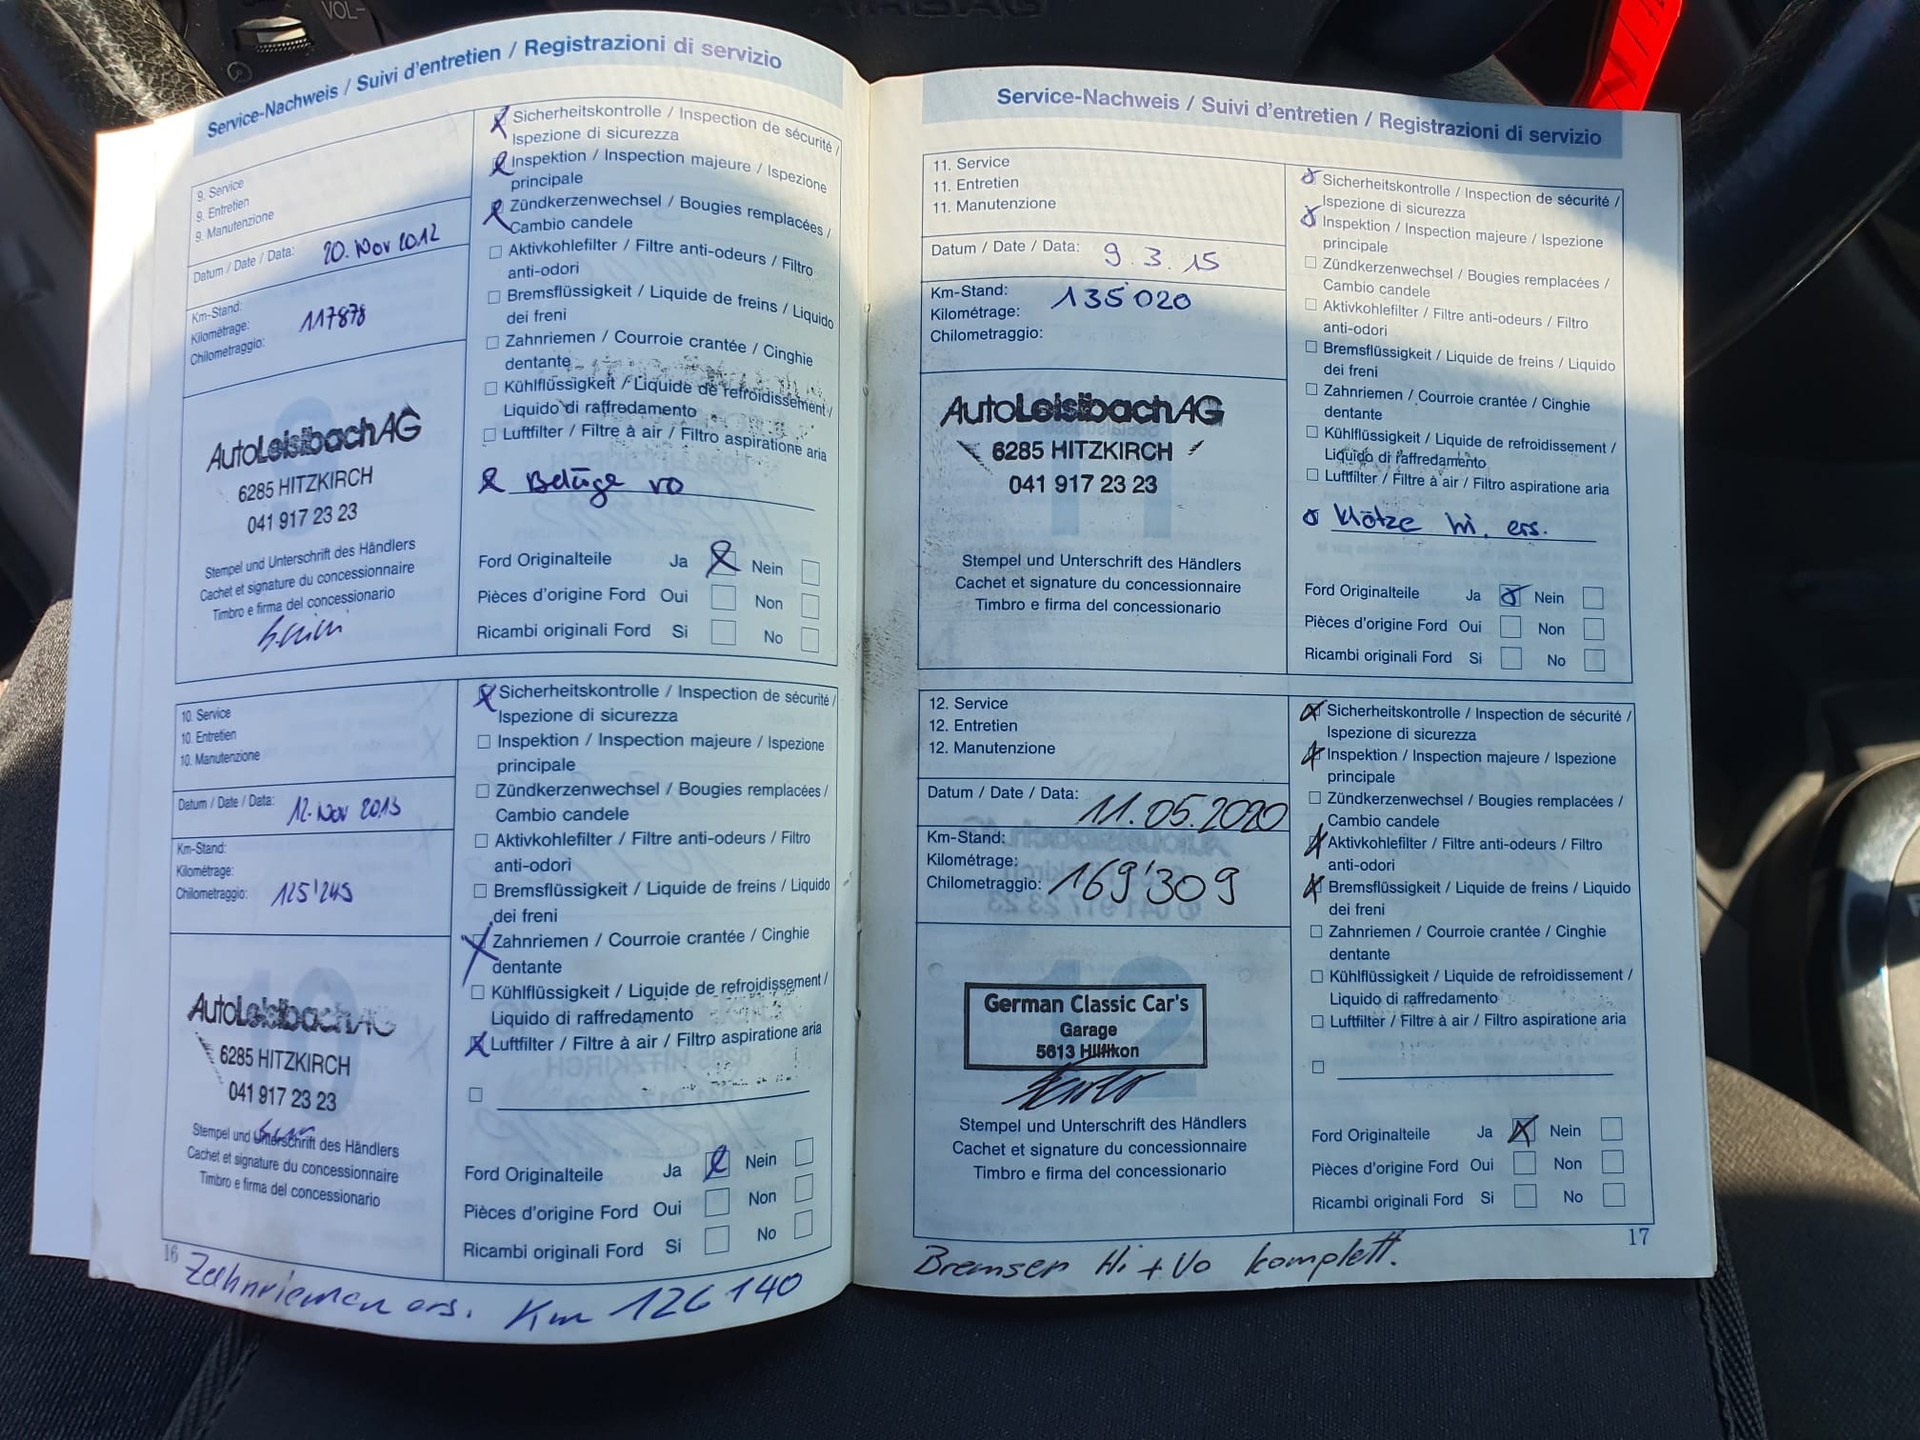 VOL-
AIRBAG
Service-Nachweis / Suivi d'entretien / Registrazioni di servizio
9. Service
9. Entretien
9. Manutenzione
Datum / Date / Data: 20. Nov 2012
Km-Stand:
Kilométrage: 117878
Chilometraggio:
AutoLeisibachAG
6285 HITZKIRCH
041 917 23 23
Stempel und Unterschrift des Händlers
Cachet et signature du concessionnaire
Timbro e firma del concessionario
Sicherheitskontrolle / Inspection de sécurité /
Ispezione di sicurezza
Inspektion / Inspection majeure / Ispezione
principale
Zündkerzenwechsel / Bougies remplacées /
Cambio candele
Aktivkohlefilter / Filtre anti-odeurs / Filtro
anti-odori
Bremsflüssigkeit / Liquide de freins / Liquido
dei freni
Zahnriemen / Courroie crantée / Cinghie
dentante
Kühlflüssigkeit / Liquide de refroidissement /
Liquido di raffredamento
Luftfilter / Filtre à air / Filtro aspiratione aria
Beläge vo
Ford Originalteile Ja Nein
Pièces d'origine Ford Oui Non
Ricambi originali Ford Si No
10. Service
10. Entretien
10. Manutenzione
Datum / Date / Data: 12. Nov 2013
Km-Stand:
Kilométrage:
Chilometraggio: 125'245
AutoLeisibachAG
6285 HITZKIRCH
041 917 23 23
Stempel und Unterschrift des Händlers
Cachet et signature du concessionnaire
Timbro e firma del concessionario
Sicherheitskontrolle / Inspection de sécurité /
Ispezione di sicurezza
Inspektion / Inspection majeure / Ispezione
principale
Zündkerzenwechsel / Bougies remplacées /
Cambio candele
Aktivkohlefilter / Filtre anti-odeurs / Filtro
anti-odori
Bremsflüssigkeit / Liquide de freins / Liquido
dei freni
Zahnriemen / Courroie crantée / Cinghie
dentante
Kühlflüssigkeit / Liquide de refroidissement /
Liquido di raffredamento
Luftfilter / Filtre à air / Filtro aspiratione aria
Ford Originalteile Ja Nein
Pièces d'origine Ford Oui Non
Ricambi originali Ford Si No
16
Zahnriemen ers. Km 126140
Service-Nachweis / Suivi d'entretien / Registrazioni di servizio
11. Service
11. Entretien
11. Manutenzione
Datum / Date / Data: 9.3.15
Km-Stand: 135'020
Kilométrage:
Chilometraggio:
AutoLeisibachAG
6285 HITZKIRCH
041 917 23 23
Stempel und Unterschrift des Händlers
Cachet et signature du concessionnaire
Timbro e firma del concessionario
Sicherheitskontrolle / Inspection de sécurité /
Ispezione di sicurezza
Inspektion / Inspection majeure / Ispezione
principale
Zündkerzenwechsel / Bougies remplacées /
Cambio candele
Aktivkohlefilter / Filtre anti-odeurs / Filtro
anti-odori
Bremsflüssigkeit / Liquide de freins / Liquido
dei freni
Zahnriemen / Courroie crantée / Cinghie
dentante
Kühlflüssigkeit / Liquide de refroidissement /
Liquido di raffredamento
Luftfilter / Filtre à air / Filtro aspiratione aria
Klötze hi. ers.
Ford Originalteile Ja Nein
Pièces d'origine Ford Oui Non
Ricambi originali Ford Si No
12. Service
12. Entretien
12. Manutenzione
Datum / Date / Data: 11.05.2020
Km-Stand:
Kilométrage:
Chilometraggio: 169'309
German Classic Car's
Garage
5613 Hilfikon
Stempel und Unterschrift des Händlers
Cachet et signature du concessionnaire
Timbro e firma del concessionario
Sicherheitskontrolle / Inspection de sécurité /
Ispezione di sicurezza
Inspektion / Inspection majeure / Ispezione
principale
Zündkerzenwechsel / Bougies remplacées /
Cambio candele
Aktivkohlefilter / Filtre anti-odeurs / Filtro
anti-odori
Bremsflüssigkeit / Liquide de freins / Liquido
dei freni
Zahnriemen / Courroie crantée / Cinghie
dentante
Kühlflüssigkeit / Liquide de refroidissement /
Liquido di raffredamento
Luftfilter / Filtre à air / Filtro aspiratione aria
Ford Originalteile Ja Nein
Pièces d'origine Ford Oui Non
Ricambi originali Ford Si No
17
Bremsen Hi + Vo komplett.